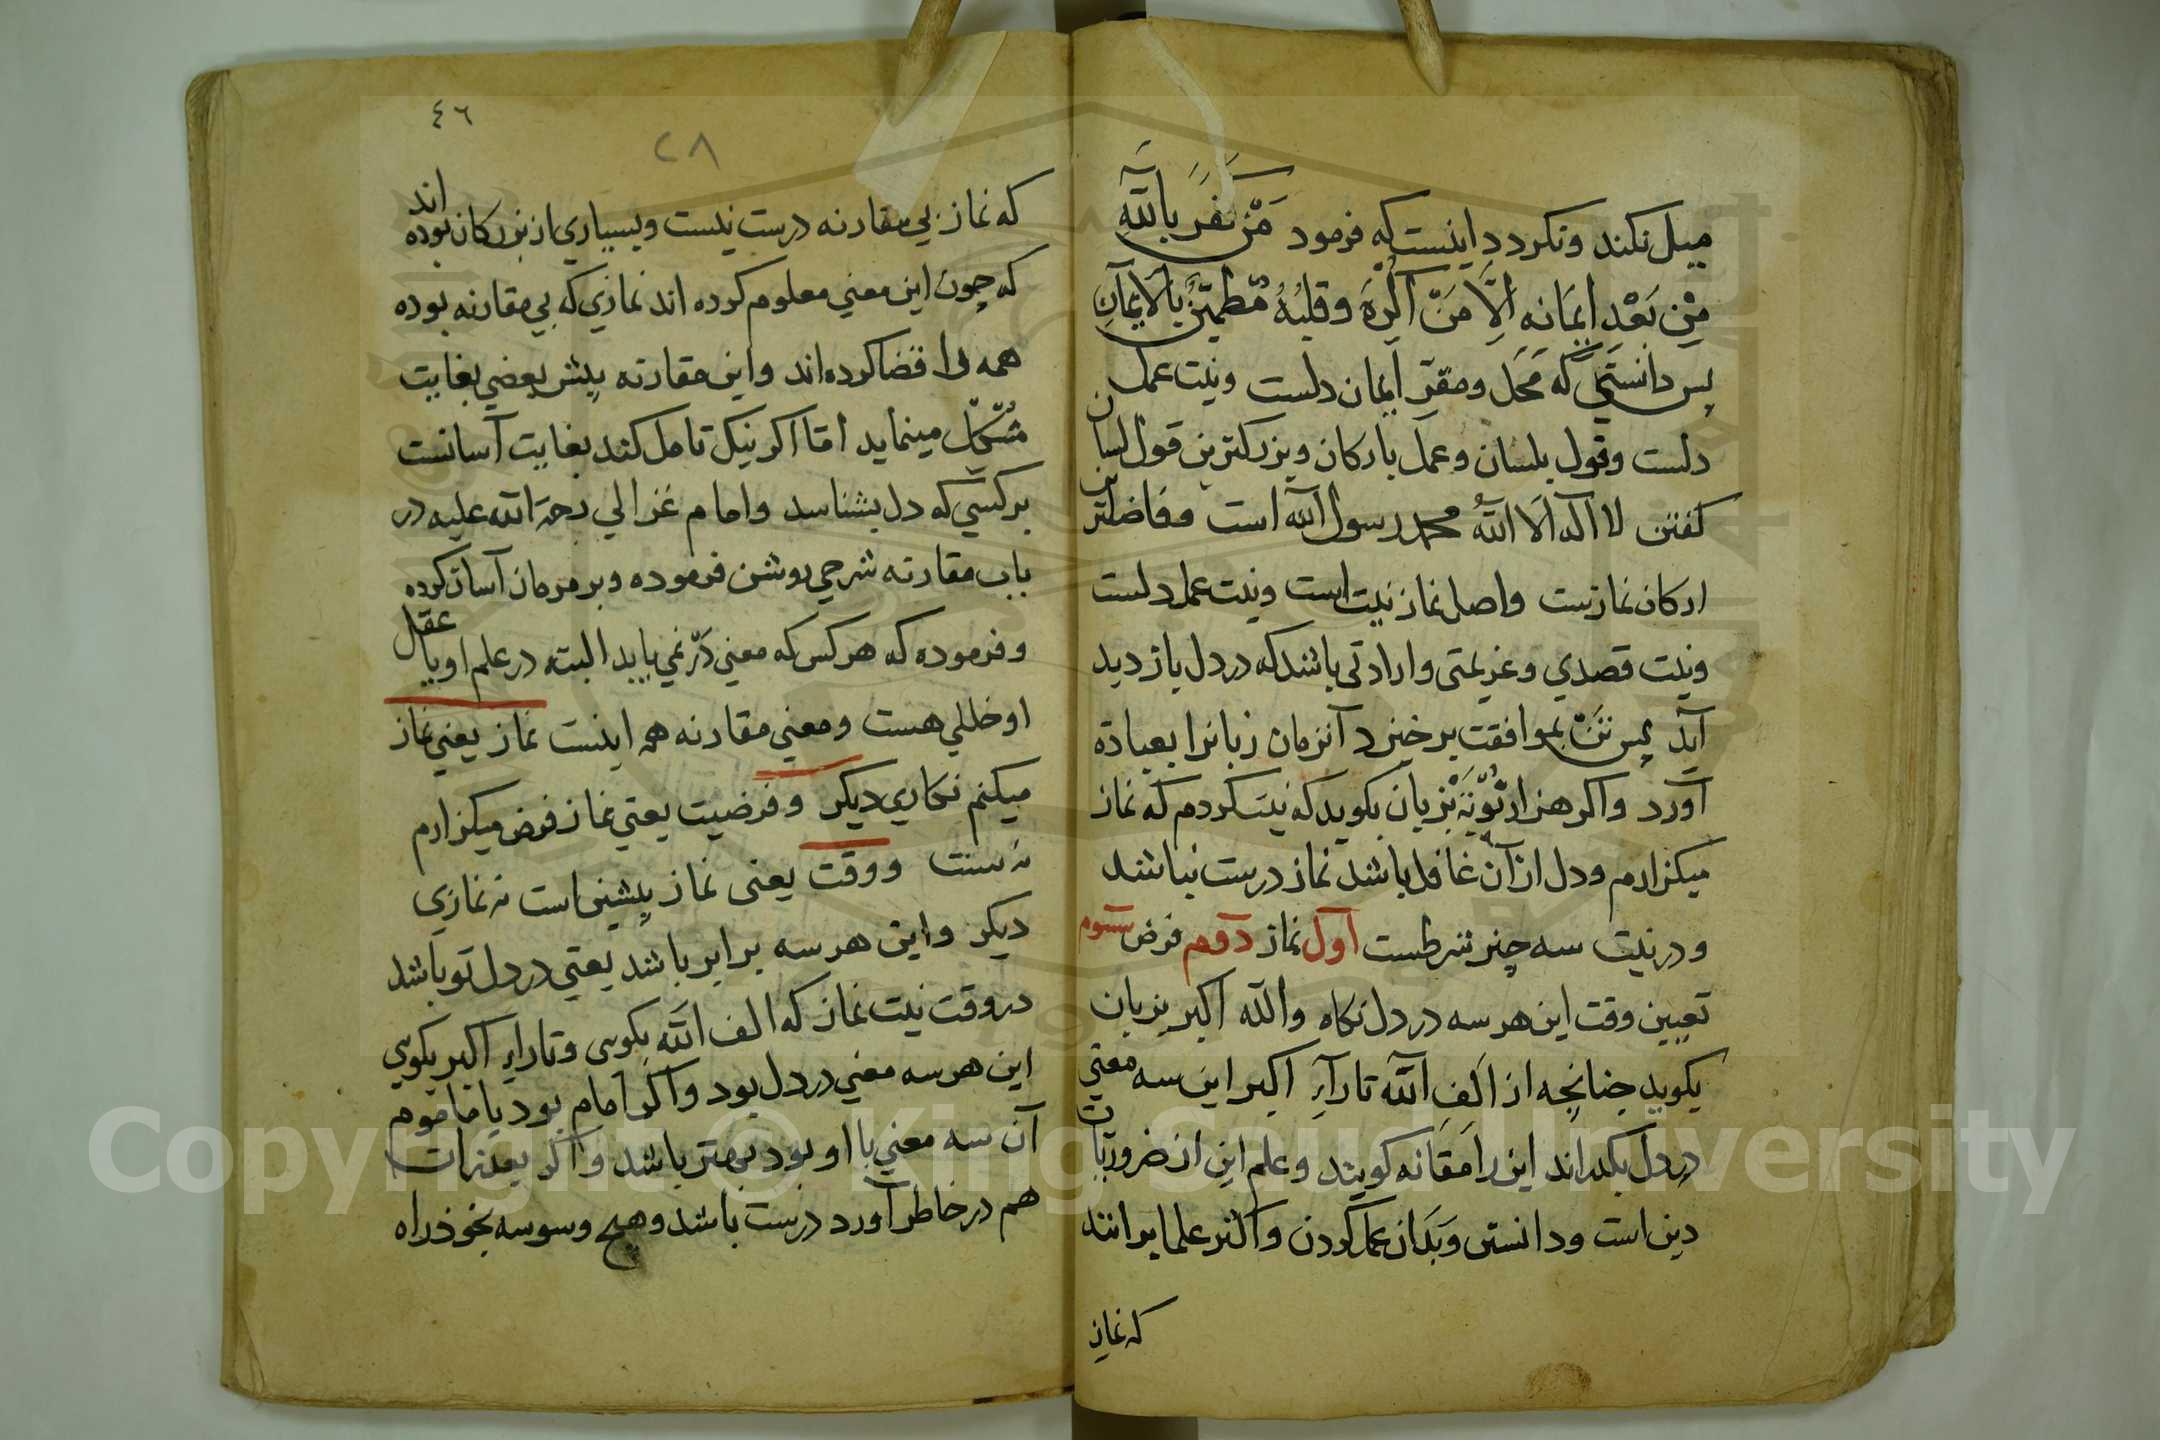 میل نکند و نکردد اینست که فرمود مَنْ کَفَرَ بِاللّٰهِ
مِنْ بَعْدِ اِیمَانِهِ اِلَّا مَنْ اُکْرِهَ وَقَلْبُهُ مُطْمَئِنٌّ بِالْاِیمَانِ
پس دانستی که مَحَل و مقرّ ایمان دلست و نیت عمل
دلست و قول بلسان و عمل بارکان و بزرکترین قول لسان
کفتن لا اله الا اللّٰه محمد رسول اللّٰه است و فاضلترین
ارکان نمازست و اصل نماز نیت است و نیت عمل دلست
و نیت قصدی و عزیمتی و ارادتی باشد که در دل بازدید
آید پس تن بموافقت برخیزد آنزمان زبانرا بعبادة
آورد و اکر هزار نوبة بزبان بکوید که نیت کردم که نماز
میکزارم و دل از آن غافل باشد نماز درست نباشد
و در نیت سه چیز شرطست اول نماز دوم فرض سوم
تعیین وقت این هر سه در دل نکاه و اللّٰه اکبر بزبان
بکوید چنانچه از الف اللّٰه تا راءِ اکبر این سه معنی
در دل بکذراند این را مقانه کویند و علم این از ضروریات
دین است و دانستن و بدان عمل کردن و اکثر علما برانند
که نماز
٤٦
٢٨
که نماز بی مقارنه درست نیست و بسیاری از بزرکان بوده اند
که چون این معنی معلوم کرده اند نمازی که بی مقارنه بوده
همه را قضا کرده اند و این مقارنه پیش بعضی بغایت
مشکل مینماید اما اکر نیک تامل کند بغایت آسانست
بر کسی که دل بشناسد و امام غزالی رحمة اللّٰه علیه در
باب مقارنه شرحی روشن فرموده و بر مردمان آسان کرده
و فرموده که هر کس که معنی در نمی یابد البته در علم او یا عقل
او خللی هست و معنی مقارنه همه اینست نماز یعنی نماز
میکنم نه کاری دیکر و فرضیت یعنی نماز فرض میکزارم
نه سنت و وقت یعنی نماز پیشین است نه نمازی
دیکر و این هر سه برابر باشد یعنی در دل تو باشد
در وقت نیت نماز که الف اللّٰه بکوی و تا راءِ اکبر بکویی
این هر سه معنی در دل بود و اکر امام بود یا ماموم
آن سه معنی با او بود بهتر باشد و اکر بعد زان
هم در خاطر آورد درست باشد و هیچ وسوسه بخود راه
Copyright © King Saud University